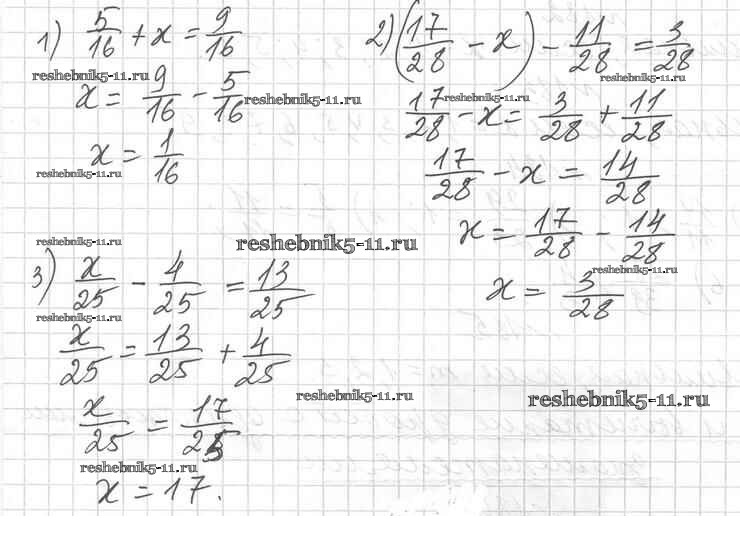 1) 5/16 + x = 9/16
reshebnik5-11.ru
x = 9/16 - 5/16
reshebnik5-11.ru
x = 1/16
reshebnik5-11.ru
2) (17/28 - x) - 11/28 = 3/28
reshebnik5-11.ru
reshebnik5-11.ru
17/28 - x = 3/28 + 11/28
17/28 - x = 14/28
x = 17/28 - 14/28
reshebnik5-11.ru
x = 3/28
reshebnik5-11.ru
reshebnik5-11.ru
3) x/25 - 4/25 = 13/25
reshebnik5-11.ru
x/25 = 13/25 + 4/25
reshebnik5-11.ru
reshebnik5-11.ru
x/25 = 17/25
reshebnik5-11.ru
x = 17.